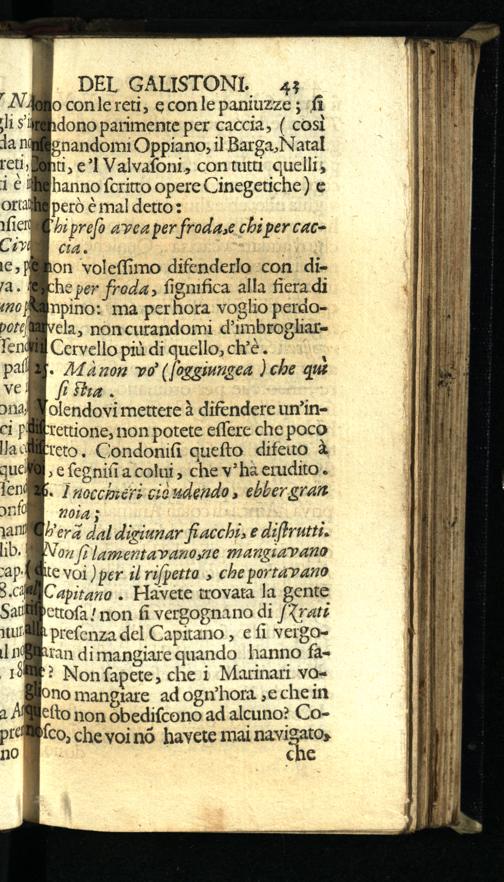 DEL GALISTONI. 43
ono con le reti, e con le paniuzze; ſi
rendono parimente per caccia, (così
ſegnandomi Oppiano, il Barga, Natal
Conti, e'l Valvaſoni, con tutti quelli,
che hanno ſcritto opere Cinegetiche) e
che però è mal detto:
Chi preſo avea per froda, e chi per cac-
cia.
ſe non voleſſimo difenderlo con di-
re, che per froda, ſignifica alla fiera di
Rampino: ma per hora voglio perdo-
narvela, non curandomi d'imbrogliar-
vi il Cervello più di quello, ch'è.
25. Mà non vo' (ſoggiungea) che quì
ſi ſtia.
Volendovi mettere à difendere un'in-
diſcrettione, non potete eſſere che poco
diſcreto. Condoniſi queſto difetto à
voi, e ſegniſi a colui, che v'hà erudito.
26. I nocchieri ciò udendo, ebber gran
noia;
Ch'erã dal digiunar fiacchi, e diſtrutti.
Non ſi lamentavano, ne mangiavano
(dite voi) per il riſpetto, che portavano
al Capitano. Havete trovata la gente
riſpettoſa! non ſi vergognano di ſKrati
alla preſenza del Capitano, e ſi vergo-
gnaran di mangiare quando hanno fa-
me? Non ſapete, che i Marinari vo-
gliono mangiare ad ogn'hora, e che in
queſto non obediſcono ad alcuno? Co-
noſco, che voi nõ havete mai navigato,
che